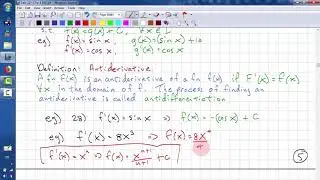 f(x) = g(x) + C
eg) f(x) = sin x , g(x) = sin x + 10
f'(x) = cos x , g'(x) = cos x
Definition: Antiderivative:
A fn F(x) is an antiderivative of a fn f(x) if F'(x) = f(x)
∀x in the domain of f. The process of finding an
antiderivative is called antidifferentiation
eg) f'(x) = -cos(x) + C
eg) f'(x) = 8x³ ⇒ f(x) = 8x⁴/4
f'(x) = xⁿ ⇒ f(x) = xⁿ⁺¹/n+1 + C
5